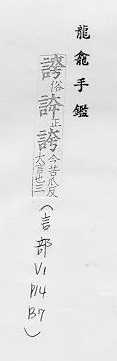 龍龕手鑑
俗正誇今苦瓜反大言也三(言部 V1 P14 B7)